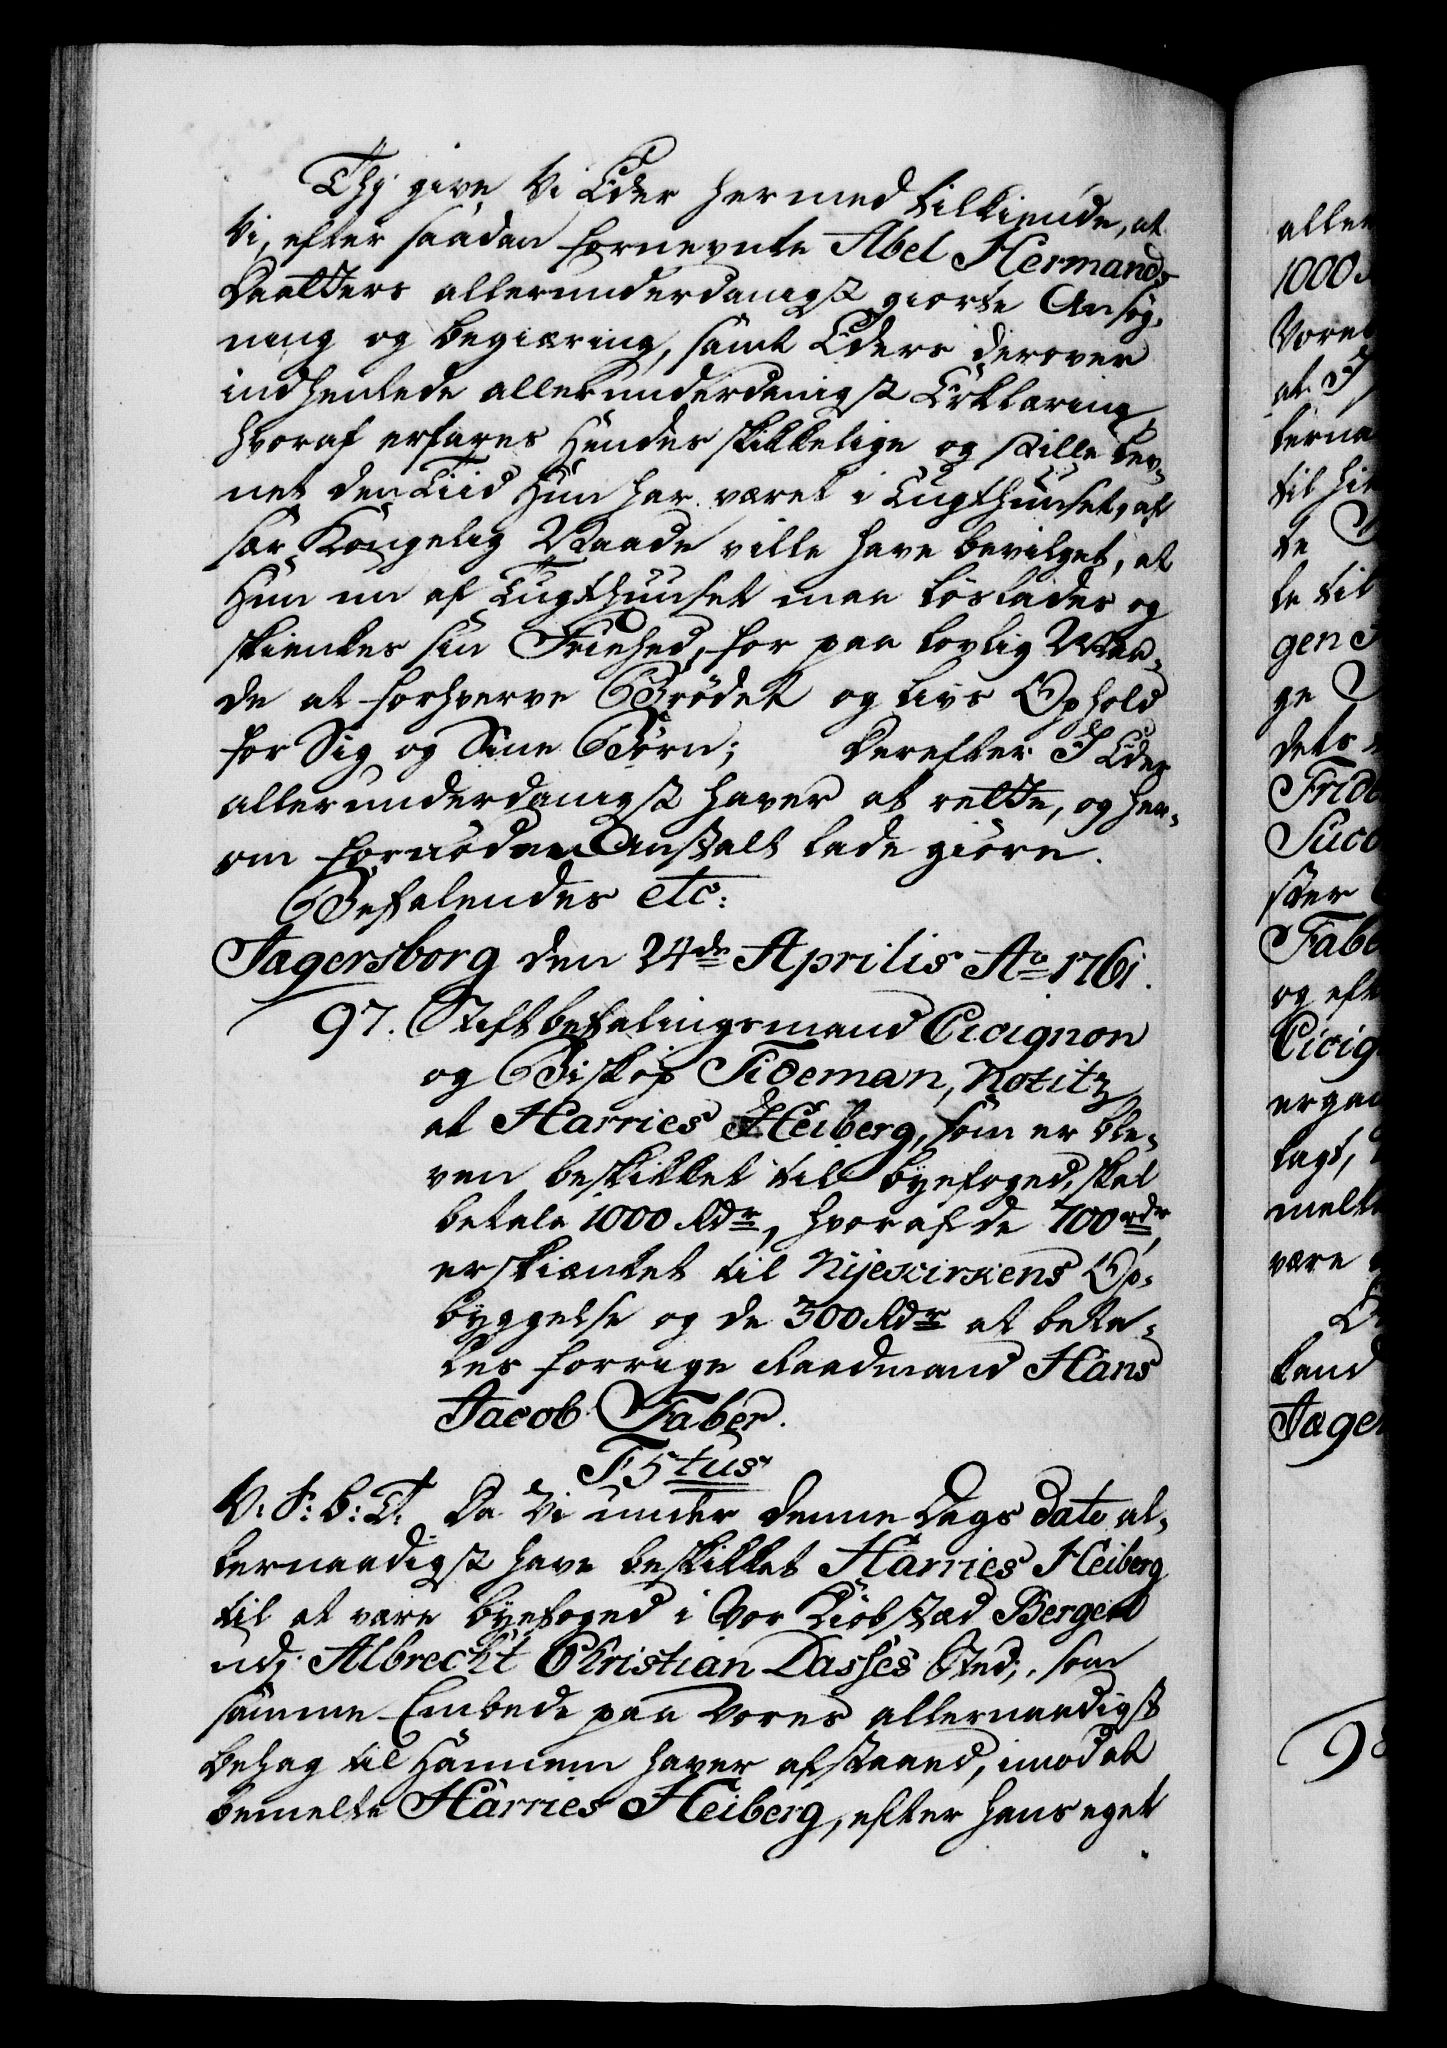 Thj give Vi Eder hermed tilkiende, at
Vi, efter saadan fornevnte Abel Hermands
Daatters allerunderdanigst giorte Ansøg-
ning og begiæring, samt Eders derover
indhentede allerunderdanigst Erklæring,
hvoraf erfares hendes skikkelige og stille Lev-
net den Tiid hun har været i Tugthuuset, af
sær Kongelig Naade ville have bevilget, at
hun nu af Tugthuuset maa løslades og
skienkes sin Friehed, for paa lovlig Maa-
de at forhverve Brødet og Livs Ophold
for Sig og Sine Børn; Derefter I Eder
allerunderdanigst haver at rette, og her-
om fornøden Anstalt lade giøre.
Befalendes etc:
Jagersborg den 24de Aprilis Ao 1761.
97. Stiftbefalingsmand Cicignon
og Biskop Tideman, Notitz
at Harries Heiberg, som er ble-
ven beskikket til byefoged, skal
betale 1000 Rdr, hvoraf de 700 rdr,
er skiænket til Nijekirkens Op-
byggelse og de 300 Rdr at beta-
les forrige Raadmand Hans
Jacob Faber.
F5tus
V: S: G: T: Da Vi under denne Dags Dato al-
lernaadigst have beskikket Harries Heiberg
til at være byefoged i Vor Kiøbstæd Bergen
udj Albrecht Christian Dasses Sted, som
samme Embede paa Vores allernaadigst
behag til hannem haver afstaaed, imod at
bemelte Harries Heiberg, efter hans eget
aller
1000
Vores
at I
terna
til hi
te
le til
gen
ge
dets
Fride
Suc
ster
Fabe
og eft
Cicig
ergan
lagt,
melte
være
land
Jager
98